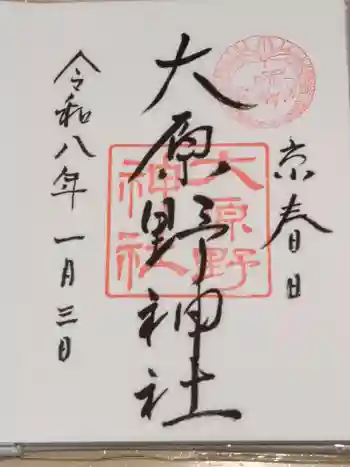 京春日
大原野神社
大原野
神社
令和八年一月三日